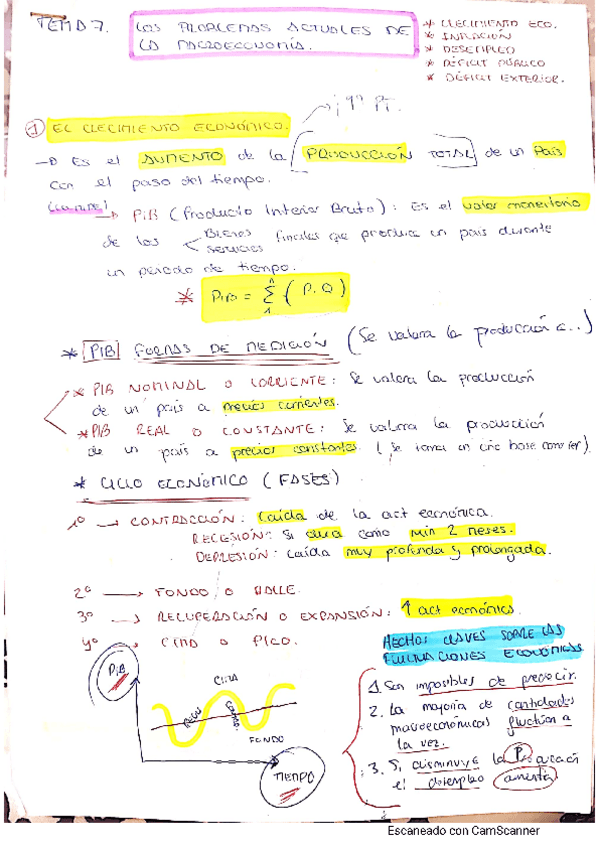 TEMA 7. LOS PROBLEMAS ACTUALES DE
LA MACROECONOMÍA.
* CRECIMIENTO ECO.
* INFLACIÓN
* DESEMPLEO
* DÉFICIT PÚBLICO
* DÉFICIT EXTERIOR.
① EL CRECIMIENTO ECONÓMICO.
→ Es el AUMENTO de la PRODUCCIÓN TOTAL de un País
con el paso del tiempo.
→ PIB (Producto Interior Bruto): Es el valor monetario
de los Bienes
servicios
finales que produce un país durante
un periodo de tiempo.
* PIB = Σ (P.Q)
* PIB FORMAS DE MEDICIÓN (Se valora la producción a...)
* PIB NOMINAL O CORRIENTE: Se valora la producción
de un país a precios corrientes.
* PIB REAL O CONSTANTE: Se valora la producción
de un país a precios constantes. (se toma un año base
* CICLO ECONÓMICO (FASES)
1º → CONTRACCIÓN: Caída de la act económica.
RECESIÓN: Si dura como min 2 meses.
DEPRESIÓN: Caída muy profunda y prolongada.
2º → FONDO O VALLE.
3º → RECUPERACIÓN O EXPANSIÓN: ↑ act económica.
4º → CIMA O PICO.
HECHOS CLAVES SOBRE LAS
FLUCTUACIONES ECONÓMICAS.
1. Son imposibles de predecir.
2. La mayoría de cantidades
macroeconómicas fluctúan a
la vez.
3. Si disminuye la Producción
el desempleo aumenta
PIB
CIMA
FONDO
TIEMPO
Escaneado con CamScanner